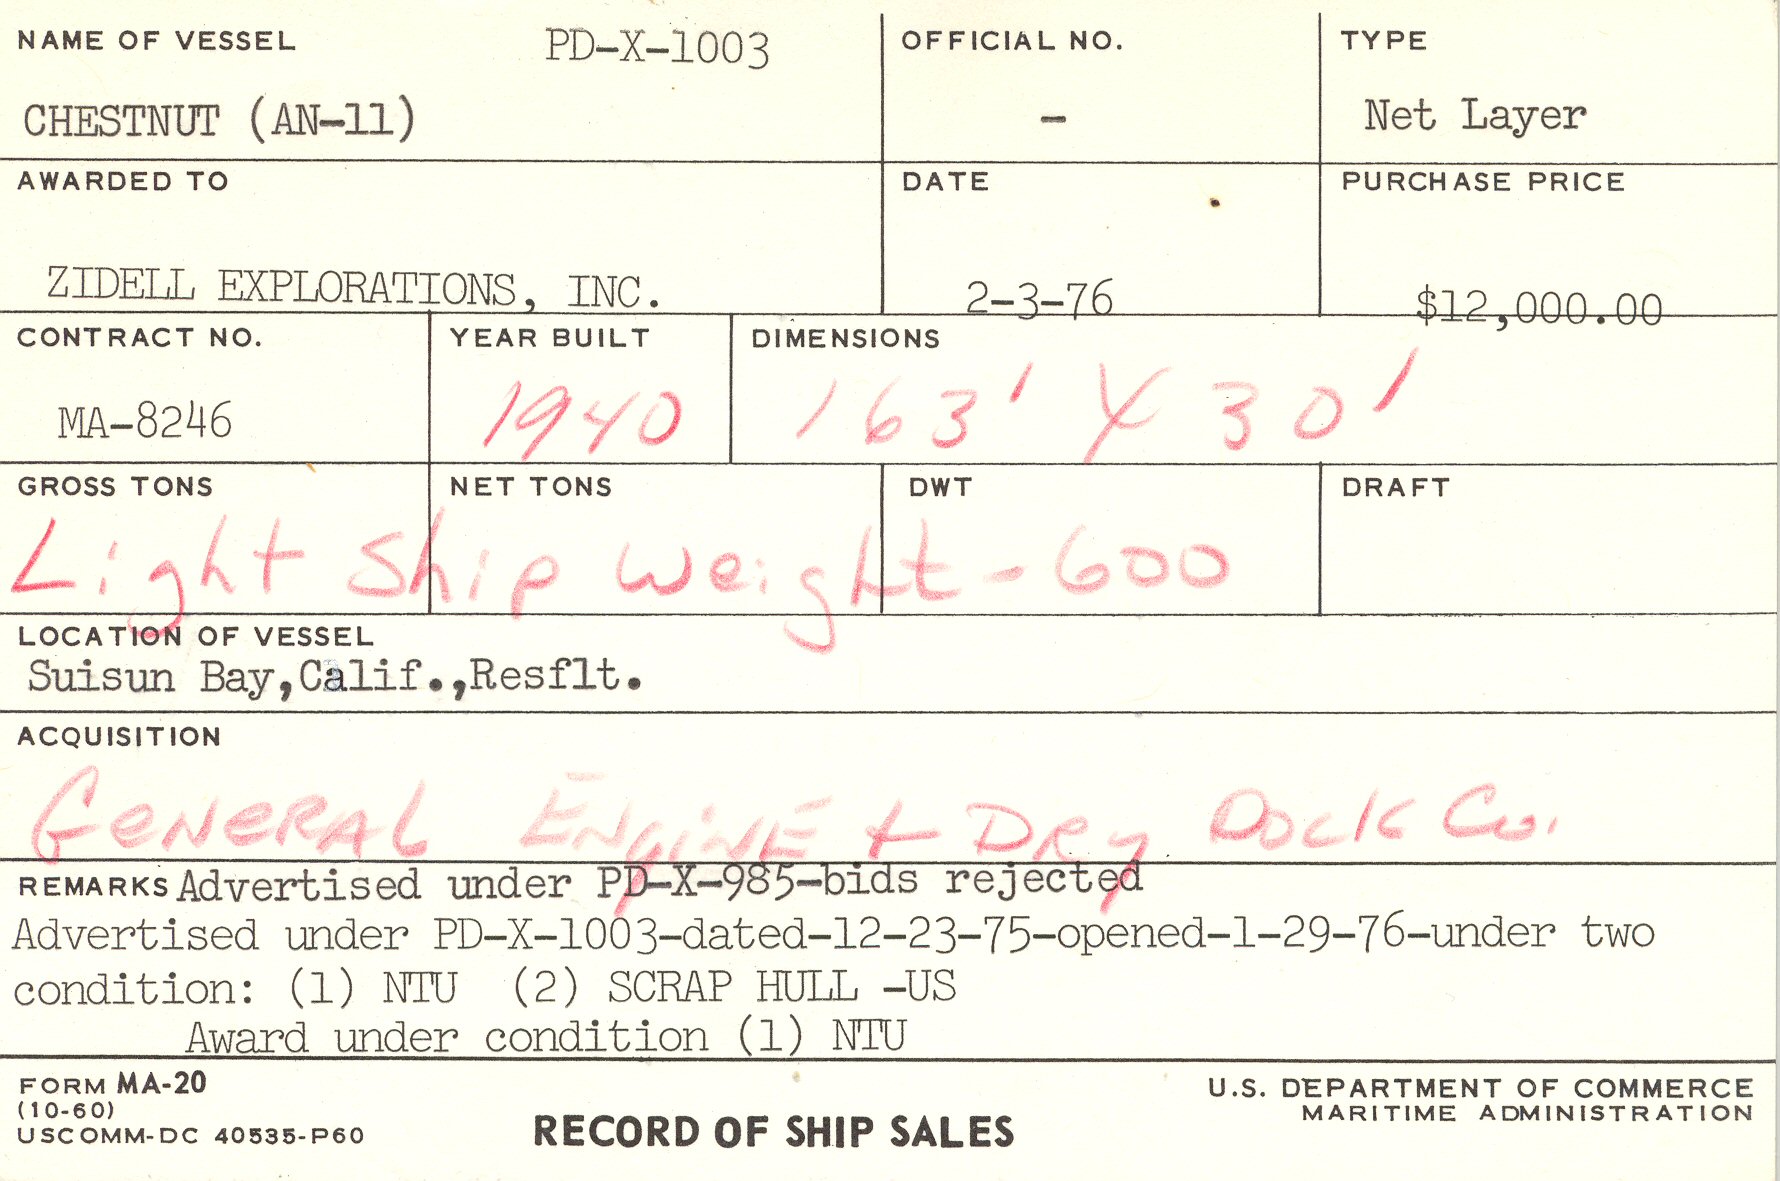 NAME OF VESSEL PD-X-1003 OFFICIAL NO. TYPE
CHESTNUT (AN-11) - Net Layer
AWARDED TO DATE PURCHASE PRICE
ZIDELL EXPLORATIONS, INC. 2-3-76 $12,000.00
CONTRACT NO. YEAR BUILT DIMENSIONS
MA-8246 1940 163' X 30'
GROSS TONS NET TONS DWT DRAFT
Light Ship Weight - 600
LOCATION OF VESSEL
Suisun Bay,Calif.,Resflt.
ACQUISITION
GENERAL ENGINE + DRY DOCK Co.
REMARKS Advertised under PD-X-985-bids rejected
Advertised under PD-X-1003-dated-12-23-75-opened-1-29-76-under two
condition: (1) NTU (2) SCRAP HULL -US
Award under condition (1) NTU
FORM MA-20
(10-60)
USCOMM-DC 40535-P60
RECORD OF SHIP SALES
U.S. DEPARTMENT OF COMMERCE
MARITIME ADMINISTRATION